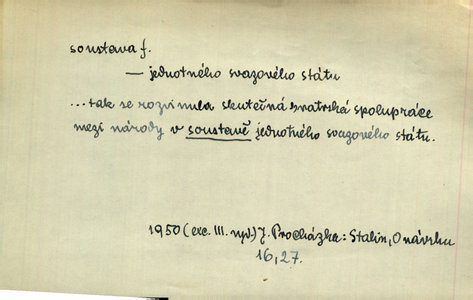 soustava f.
— jednotného svazového státu
...tak se rozvinula skutečná bratrská spolupráce
mezi národy v soustavě jednotného svazového státu.
1950 (exc. III. vyd.) J. Procházka: Stalin, O návrhu
16, 27.